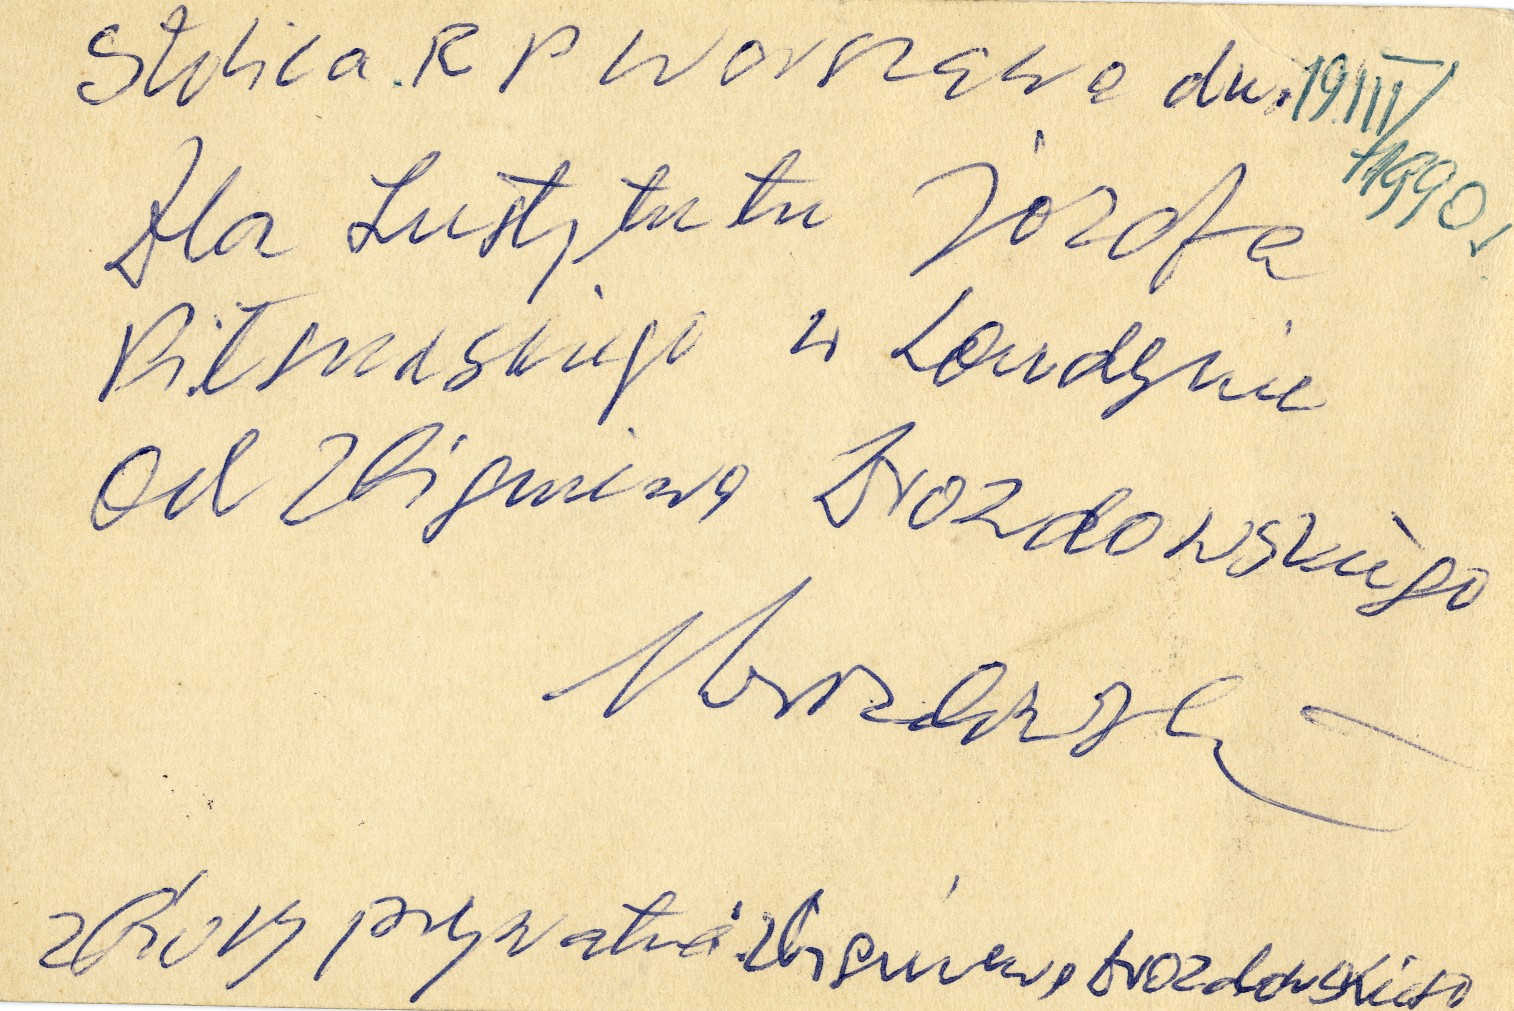 Stolica R P Warszawa dn. 19.III/1990r
Dla Instytutu Józefa
Piłsudskiego w Londynie
Od Zbigniewa Drozdowskiego
zbiory prywatne Zbigniewa Drozdowskiego